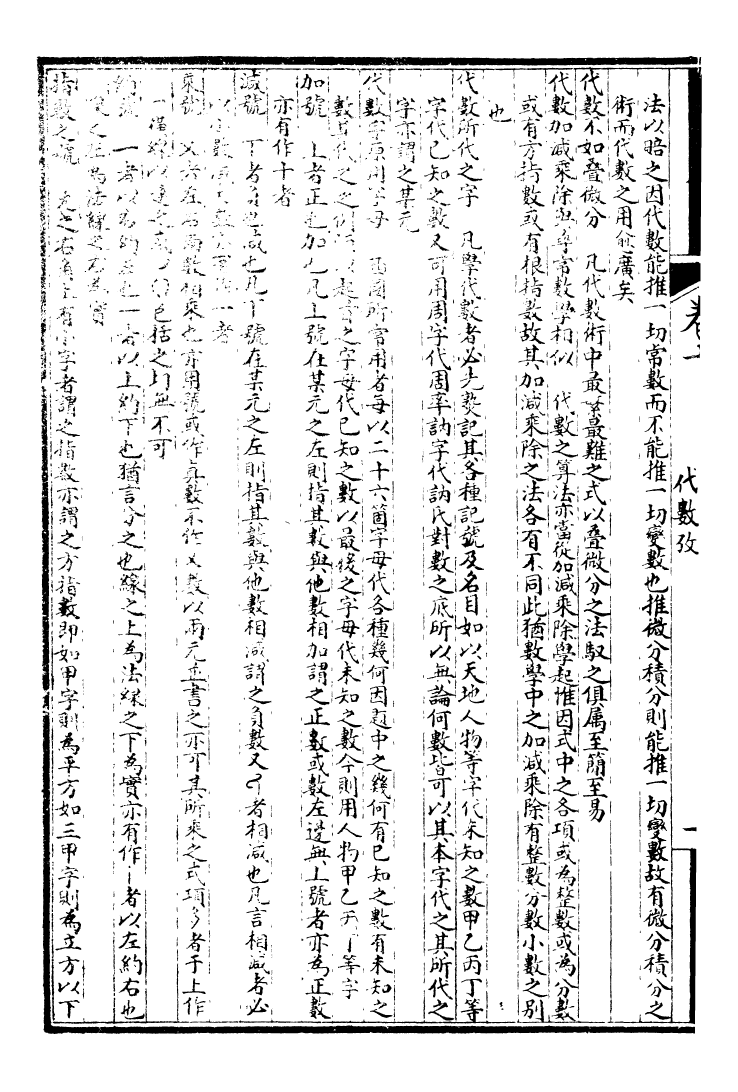 卷一
代數攷
一
法以賅之因代數能推一切常數而不能推一切變數也推微分積分則能推一切變數故有微分積分之
術而代數之用愈廣矣
代數不如疊微分　凡代數術中最繁最難之式以疊微分之法馭之俱屬至簡至易
代數加減乘除與尋常數學相似　代數之算法亦當從加減乘除學起惟因式中之各項或為整數或為分數
或有方指數或有根指數故其加減乘除之法各有不同此猶數學中之加減乘除有整數分數小數之別
也
代數所代之字　凡學代數者必先熟記其各種記號及名目如以天地人物等字代未知之數甲乙丙丁等
字代已知之數又可用周字代周率訥字代訥氏對數之底所以無論何數皆可以其本字代之其所代之
字亦謂之某元
代數字原用字母　西國所常用者每以二十六箇字母代各種幾何因題中之幾何有已知之數有未知之
數古代之之例以起首之字母代已知之數以最後之字母代未知之數今則用人物甲乙丙丁等字
加號　丄者正也加也凡丄號在某元之左則指其數與他數相加謂之正數或數左邊無丄號者亦為正數
亦有作十者
減號　丅者負也減也凡丅號在某元之左則指其數與他數相減謂之負數又者相減也凡言相減者必
以小數減大數一者
乘號　乂者在右兩數相乘也亦用號或作真數不作乂數以兩元並書之亦可其所乘之式項多者于上作
一線以連之或包括之均無不可
約號　一者以右約左也一者以上約下也猶言分之也線之上為法線之下為實亦有作丨者以左約右也
線之左為法線之右為實
指數之號　元之右角上有小字者謂之指數亦謂之方指數即如甲字則為平方如三甲字則為立方以下